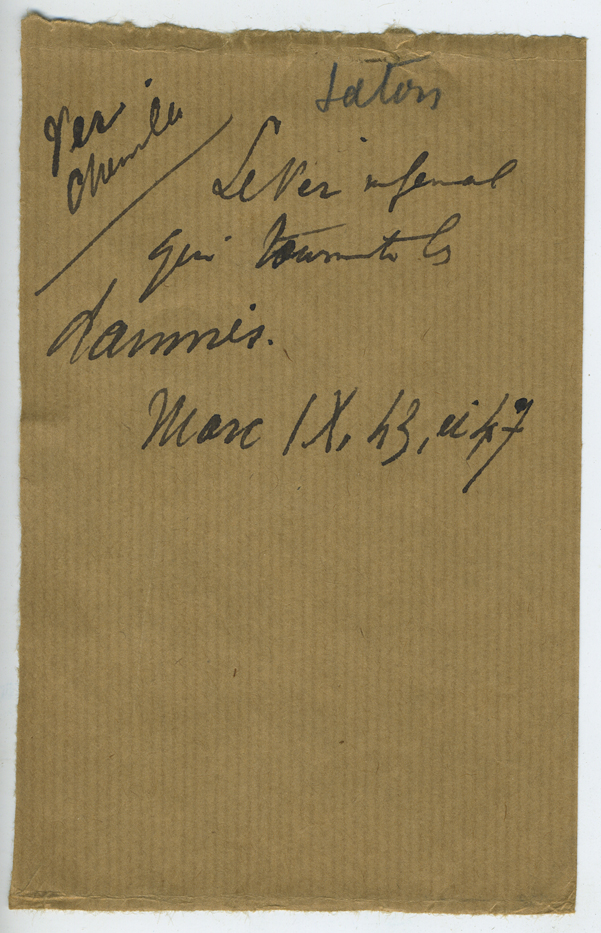 Satan
Ver
Chenille
Le Ver infernal
qui tourmente les
damnés.
Marc IX, 43, et 47